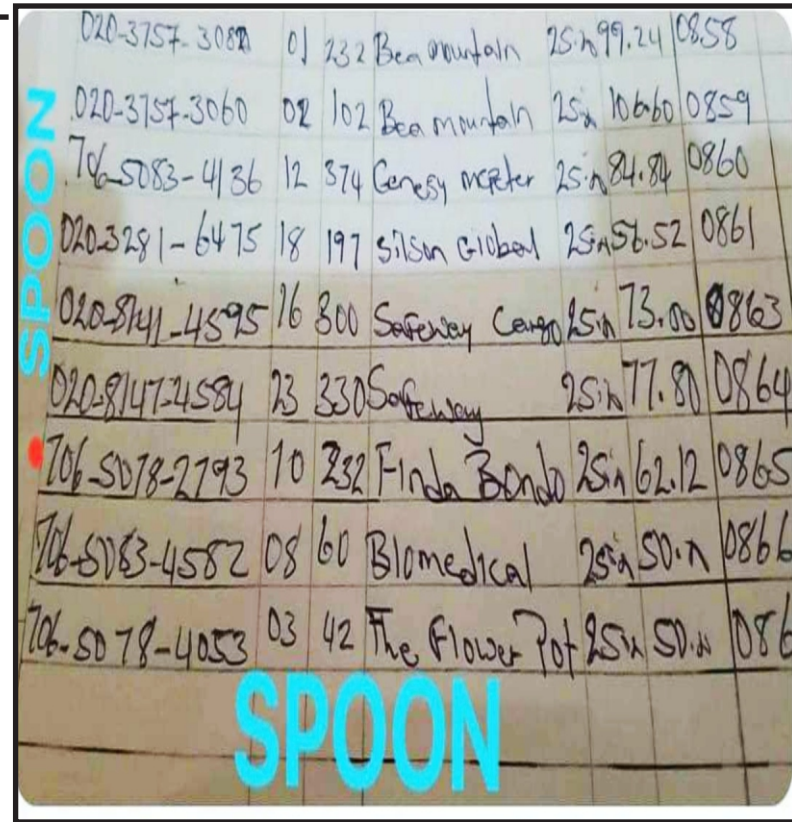 020-3757-308 01 232 Bea mountain 25.n 99.24 0858
020-3757-3060 02 102 Bea mountain 25.n 106.60 0859
706-5083-4136 12 374 Genesy 25.n 84.84 0860
020-3281-6475 18 197 Silson Global 25.n 56.52 0861
020-8141-4595 16 300 Safeway Cargo 25.n 73.00 0863
020-8147-4584 23 330 Safeway 25.n 77.80 0864
706-5078-2793 10 232 Finda Bondo 25.n 62.12 0865
706-5083-4582 08 60 Biomedical 25.n 50.n 0866
706-5078-4053 03 42 The Flower Pot 25.n 50.n 086
SPOON
SPOON